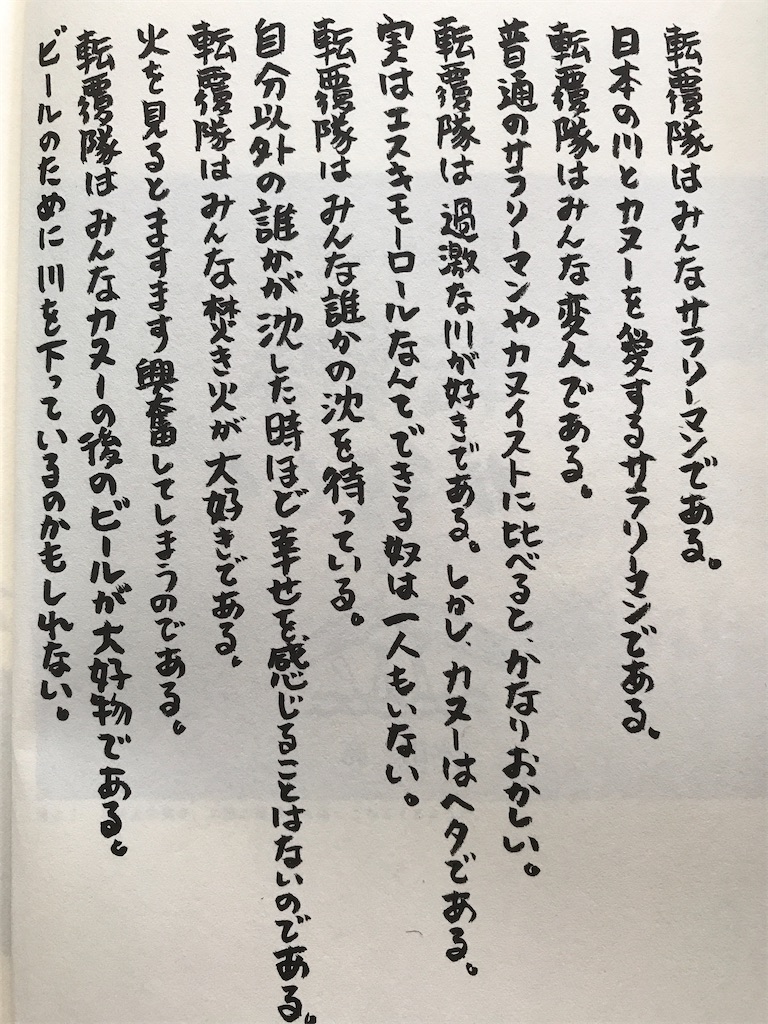 転覆隊はみんなサラリーマンである。
日本の川とカヌーを愛するサラリーマンである。
転覆隊はみんな変人である。
普通のサラリーマンやカヌイストに比べると、かなりおかしい。
転覆隊は過激な川が好きである。しかし、カヌーはヘタである。
実はエスキモーロールなんてできる奴は一人もいない。
転覆隊はみんな誰かの沈を待っている。
自分以外の誰かが沈した時ほど幸せを感じることはないのである。
転覆隊はみんな焚き火が大好きである。
火を見るとますます興奮してしまうのである。
転覆隊はみんなカヌーの後のビールが大好物である。
ビールのために川を下っているのかもしれない。